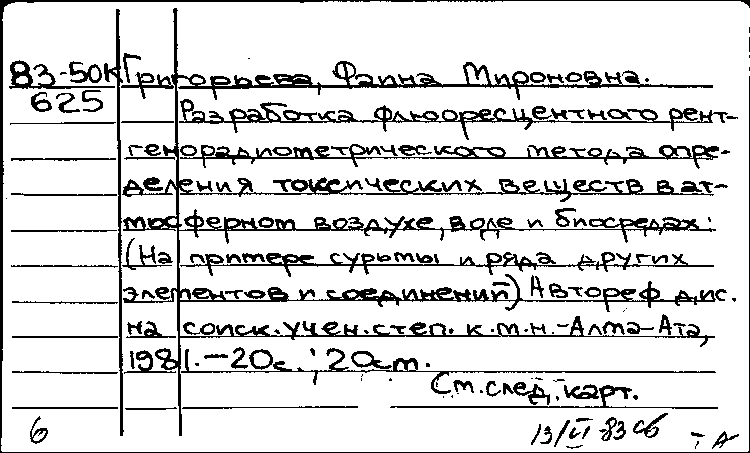 83-50К Григорьева, Фаина Мироновна.
625 Разработка флюоресцентного рент-
генорадиометрического метода опре-
деления токсических веществ в ат-
мосферном воздухе, воде и биосредах:
(На примере сурьмы и ряда других
элементов и соединений) Автореф дис.
на соиск. учен. степ. к.м.н.-Алма-Ата,
1981.-20с.; 20см.
См. след. карт.
6 13/VI-83